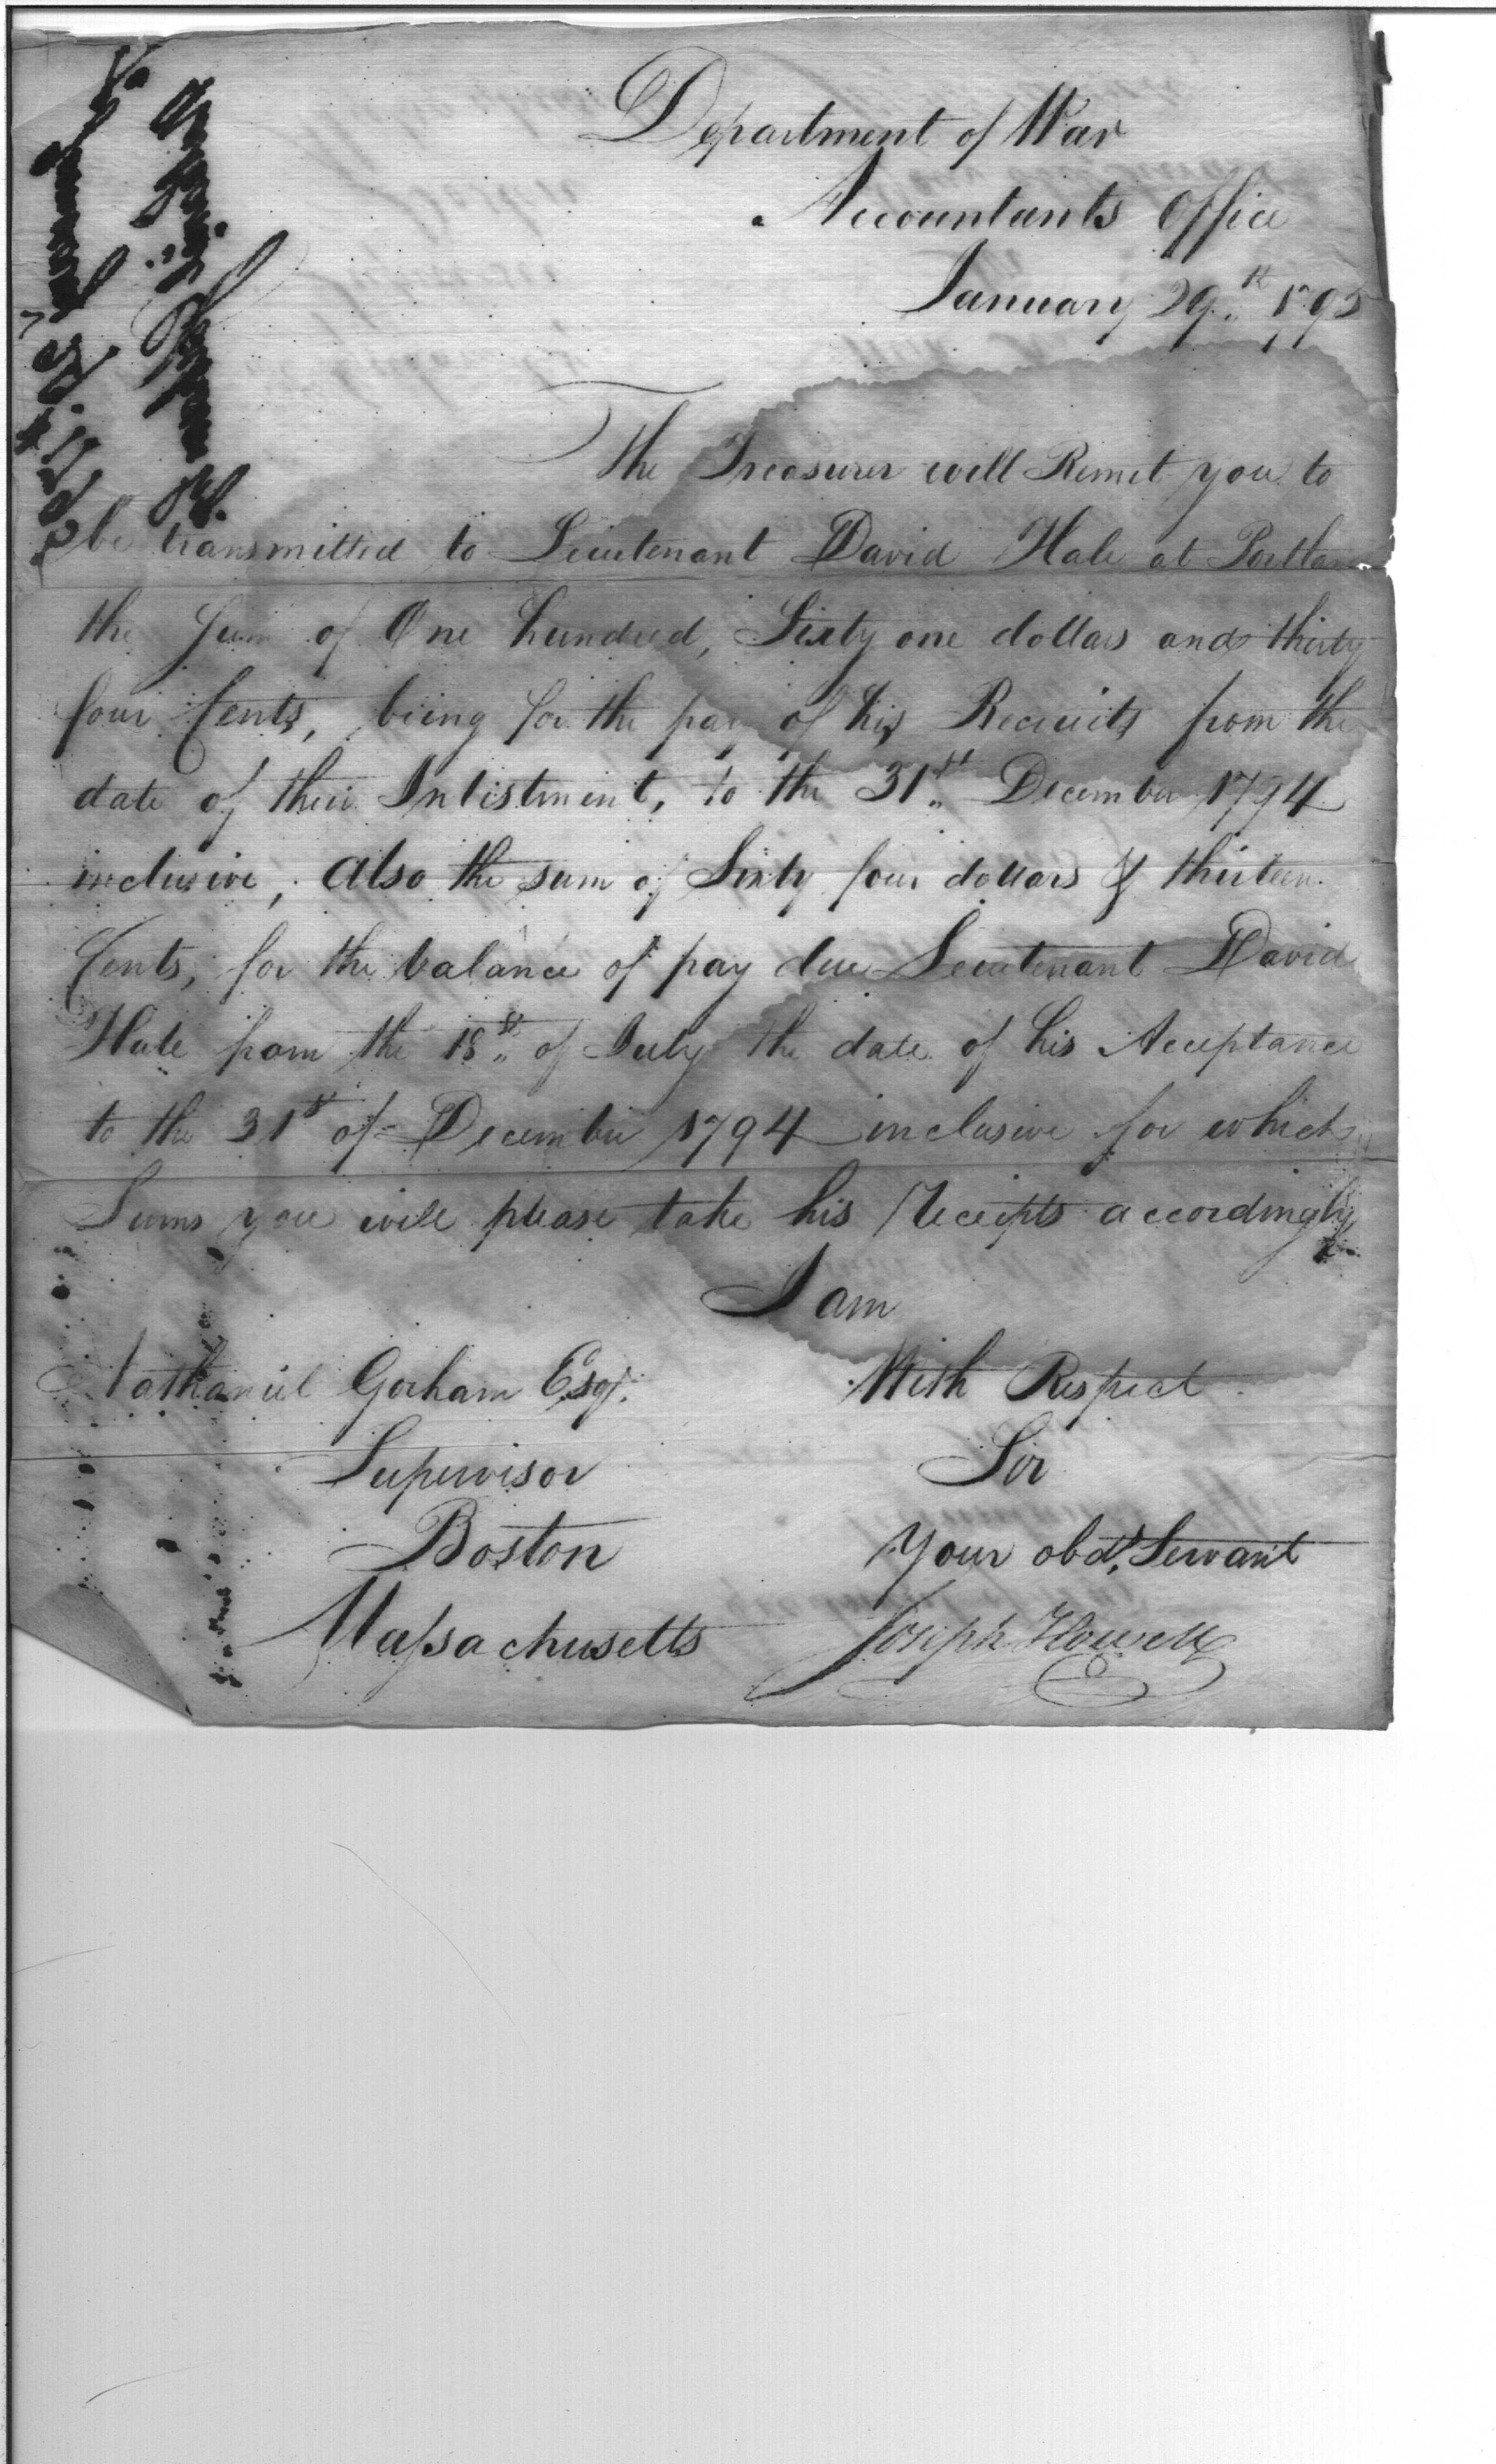 Department of War
Accountants Office
January 29th 1795
The Treasurer will Remit you to
be transmitted to Lieutenant David Hale at Portland
the Sum of One hundred, Sixty one dollars and thirty
four Cents, being for the pay of his Recruits from the
date of their Inlistment, to the 31st December 1794
inclusive, also the sum of Sixty four dollars & thirteen
Cents, for the balance of pay due Lieutenant David
Hale from the 18th of July the date of his Acceptance
to the 31st of December 1794 inclusive for which
Sums you will please take his Receipts accordingly
I am
With Respect
Sir
Your obdt. Servant
Joseph Howell
Nathaniel Gorham Esqr.
Supervisor
Boston
Massachusetts